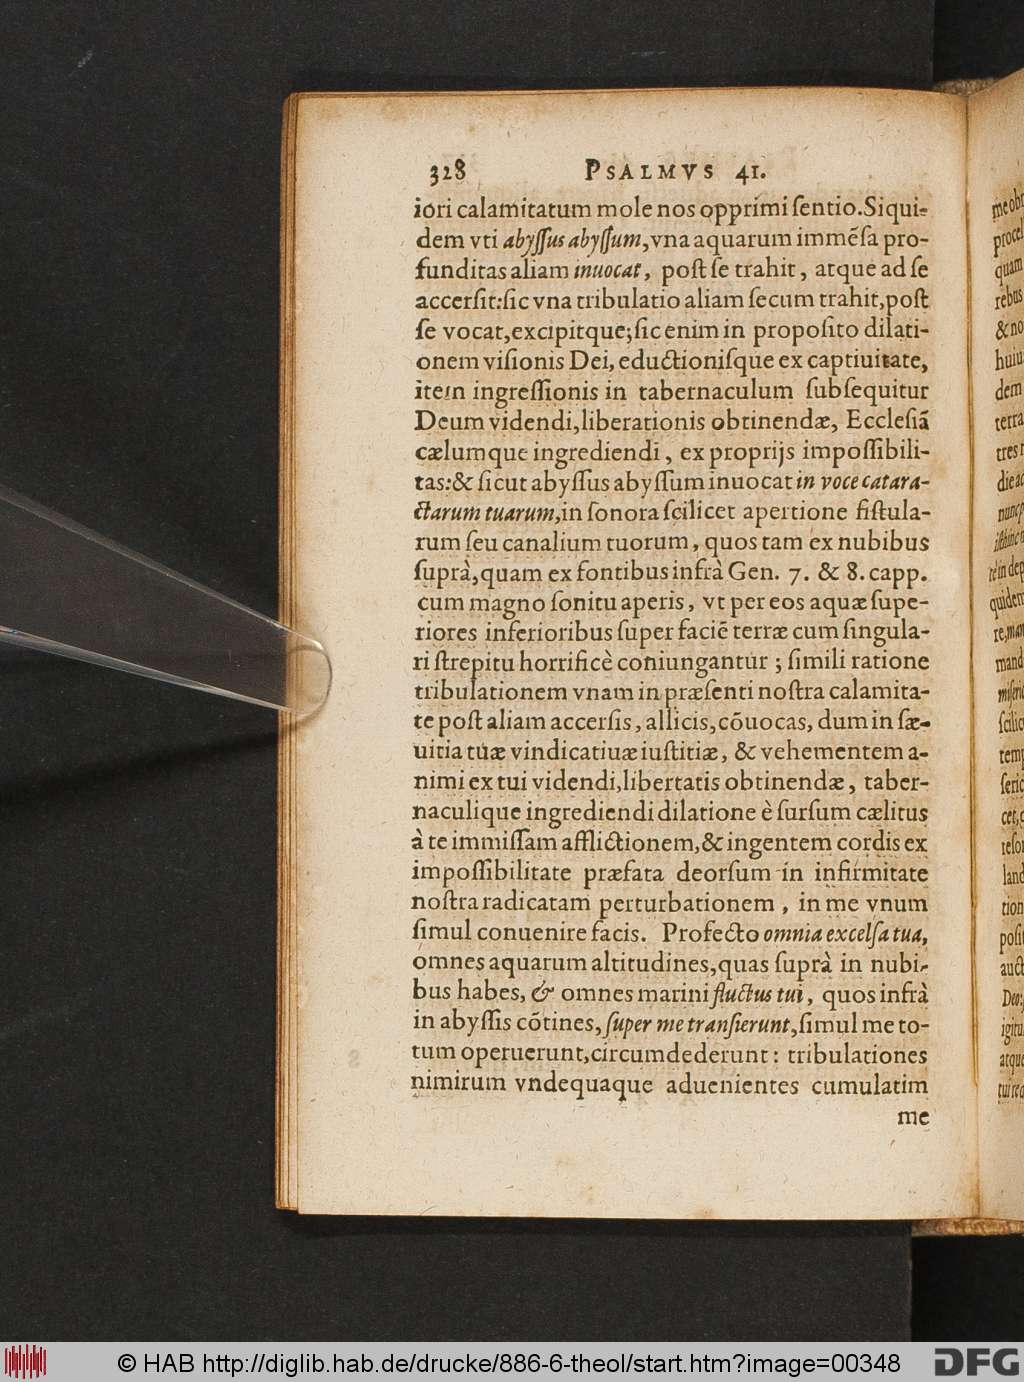 328 PSALMVS 41.
iori calamitatum mole nos opprimi ſentio. Siqui-
dem vti abyſſus abyſſum, vna aquarum immēſa pro-
funditas aliam inuocat, poſt ſe trahit, atque ad ſe
accerſit: ſic vna tribulatio aliam ſecum trahit, poſt
ſe vocat, excipitque; ſic enim in propoſito dilati-
onem viſionis Dei, eductioniſque ex captiuitate,
item ingreſſionis in tabernaculum ſubſequitur
Deum videndi, liberationis obtinendæ, Eccleſiā
cælumque ingrediendi, ex proprijs impoſſibili-
tas: & ſicut abyſſus abyſſum inuocat in voce catara-
ctarum tuarum, in ſonora ſcilicet apertione fiſtula-
rum ſeu canalium tuorum, quos tam ex nubibus
ſuprà, quam ex fontibus infrà Gen. 7. & 8. capp.
cum magno ſonitu aperis, vt per eos aquæ ſupe-
riores inferioribus ſuper faciē terræ cum ſingula-
ri ſtrepitu horrificè coniungantur; ſimili ratione
tribulationem vnam in præſenti noſtra calamita-
te poſt aliam accerſis, allicis, cōuocas, dum in ſæ-
uitia tuæ vindicatiuæ iuſtitiæ, & vehementem a-
nimi ex tui videndi, libertatis obtinendæ, taber-
naculique ingrediendi dilatione è ſurſum cælitus
à te immiſſam afflictionem, & ingentem cordis ex
impoſſibilitate præfata deorſum in infirmitate
noſtra radicatam perturbationem, in me vnum
ſimul conuenire facis. Profecto omnia excelſa tua,
omnes aquarum altitudines, quas ſuprà in nubi-
bus habes, & omnes marini fluctus tui, quos infrà
in abyſſis cōtines, ſuper me tranſierunt, ſimul me to-
tum operuerunt, circumdederunt: tribulationes
nimirum vndequaque aduenientes cumulatim
me
me obr
procel
quam
rebus
& no
huiu
dem
terra
tres r
die ac
nunc p
quidem
re, man
mand
miſeric
ſcilic
temp
ſeric
cet, c
reſor
land
tion
poſit
auct
Deo:
igitu
atque
© HAB http://diglib.hab.de/drucke/886-6-theol/start.htm?image=00348
DFG